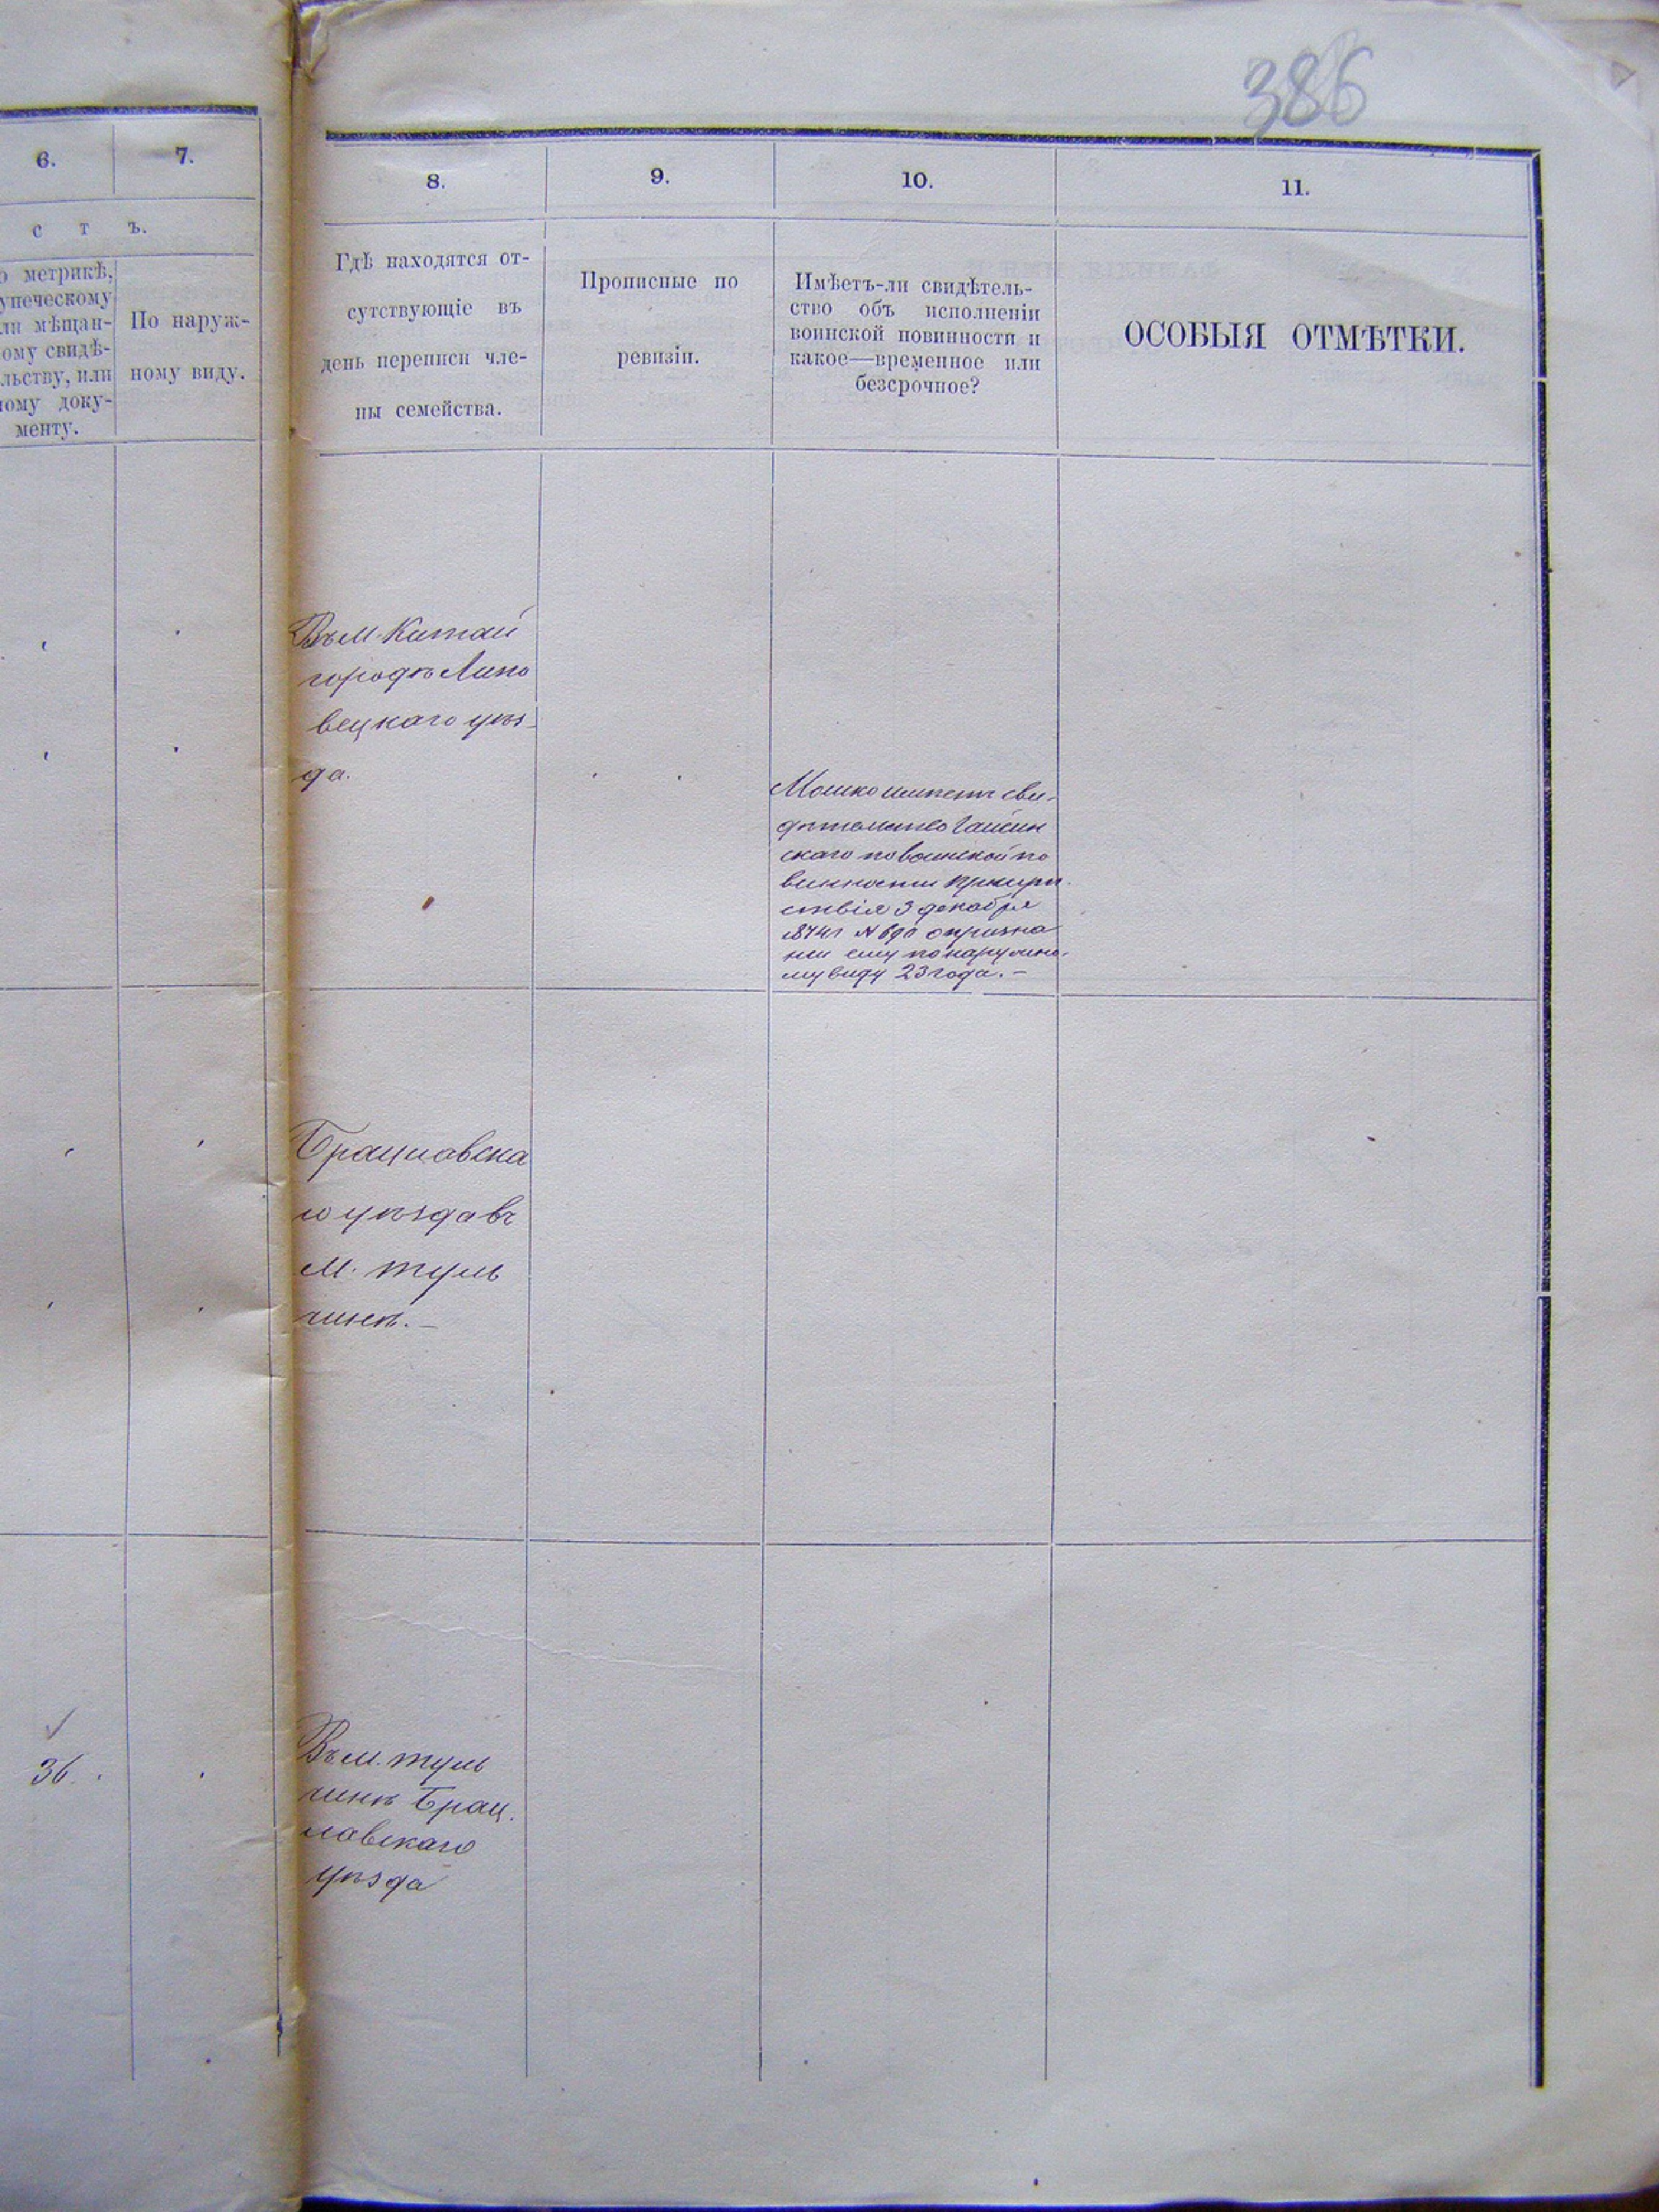 386
6.
7.
с т ъ.
о метрикѣ,
упеческому
ли мѣщан-
ому свидѣ-
льству, или
ному доку-
менту.
По наруж-
ному виду.
36.
8.
9.
10.
11.
Гдѣ находятся от-
сутствующіе въ
день переписи чле-
ны семейства.
Прописные по
ревизіи.
Имѣетъ-ли свидѣтель-
ство объ исполненіи
воинской повинности и
какое—временное или
безсрочное?
ОСОБЫЯ ОТМѢТКИ.
Въ м. Китай
городѣ Липо
вецкаго уѣз-
да.
Мошко имѣетъ сви-
дѣтельство Гайсин
скаго по воинской по
винности
ствія 3 декабря
1874 г № о призна
ніи ему по наружно-
му виду 23 года. —
Брацлавска
го уѣзда въ
м. туль
чинѣ. —
Въ м. туль
чинѣ Брац.
лавскаго
уѣзда